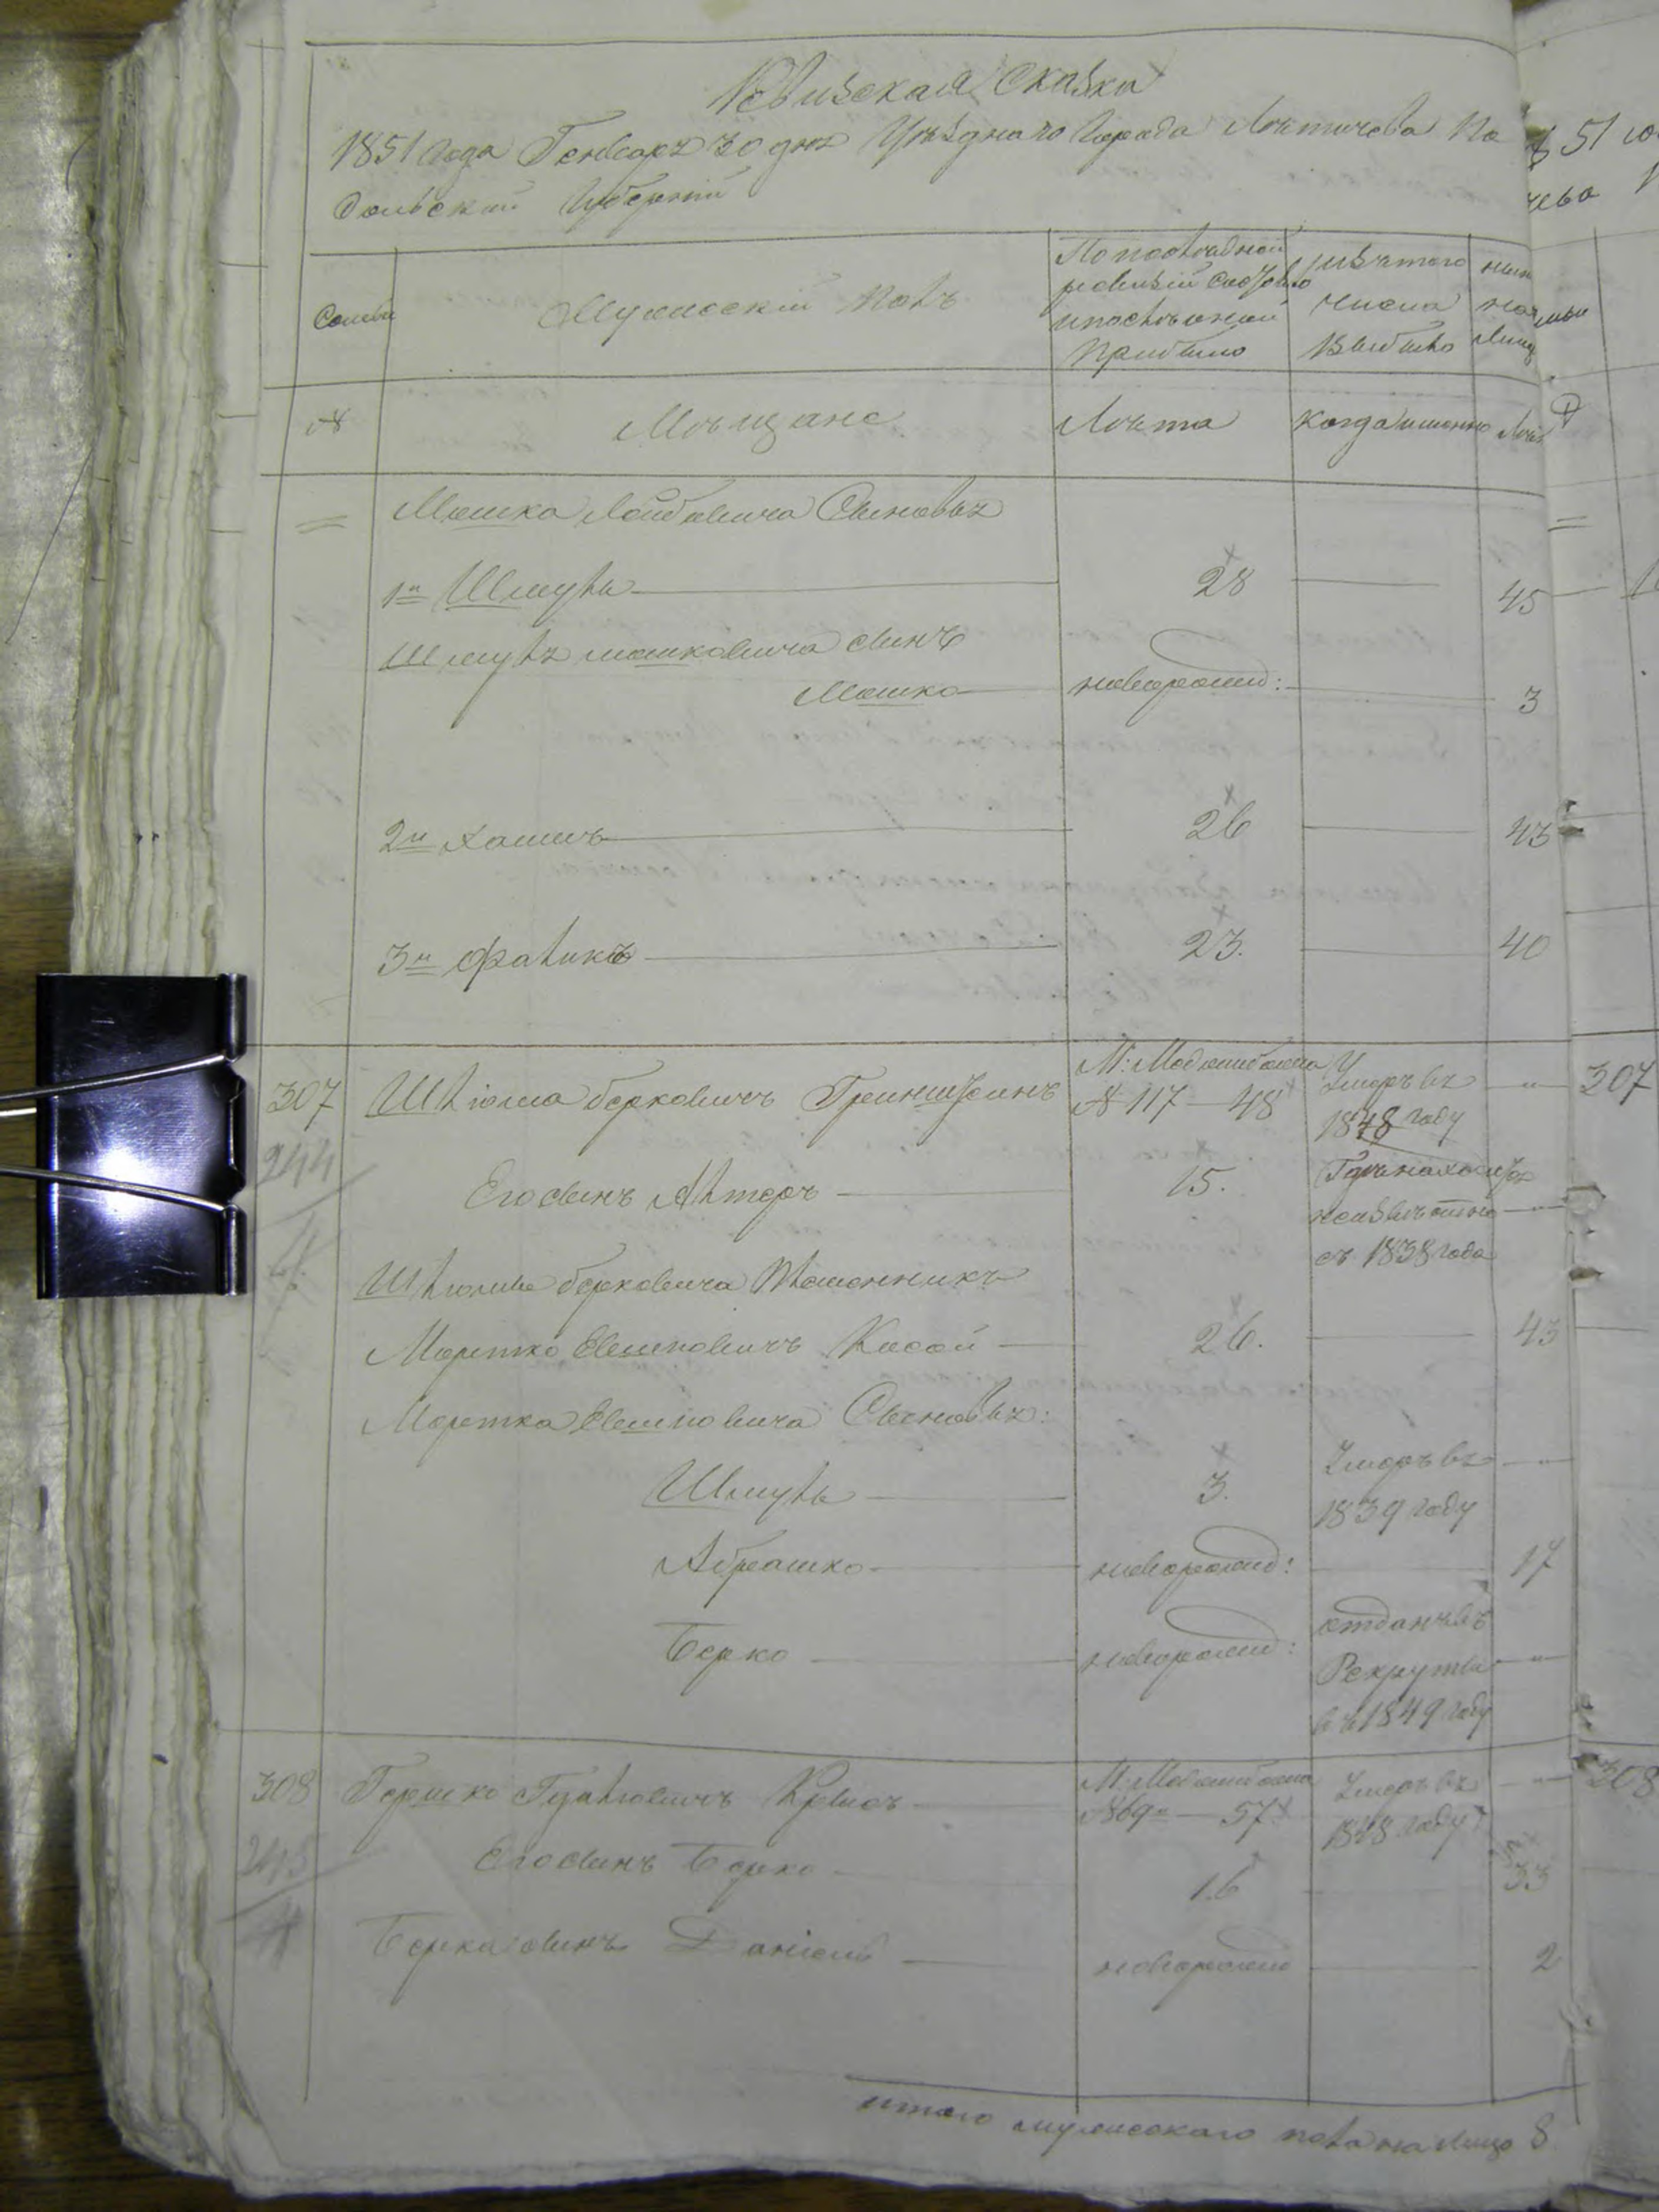 Ревизская Сказка
1851 года Генваря 30 дня Уѣзднаго Города Лѣтичева По
дольской Губерніи
Семьи
Мужескій Полъ
По последней
ревизіи состояло
и после оной
Прибыло
изъ того
числа
Выбыло
ныне
на
лицо
№
Мѣщане
Лѣта
когда именно
Лѣта
Мошка Лейбовича Сыновья
1й Шмуль 28 45
Шмуля мошковича сынъ
Мошко новорожд: 3
2й Хаимъ 26 43
3й Фаликъ 23. 40
307 Шлюма берковичъ Гринштеинъ
М: Меджибожа
№ 117 48
Умеръ въ
1848 году
307
244
4
Его сынъ Алтеръ 15.
Где находится
неизвѣстно
съ 1838 года
Шлюмы берковича Племенникъ
Мортко Евшиовичъ Косой 26. 43
Мортка Евшиовича Сыновья:
Шмуль 3.
Умеръ въ
1839 году
Абрашко новорожд: 17
Берко новорожд:
отданъ въ
Рекруты
въ 1849 году
308 Гершко
М: Меджибожа
№ 69 57
Умеръ въ
1848 году
308
245
Его сынъ Берко 16 33
Берка сынъ Даніель новорожд 2
итого мужескаго пола на лицо 8
51
чева